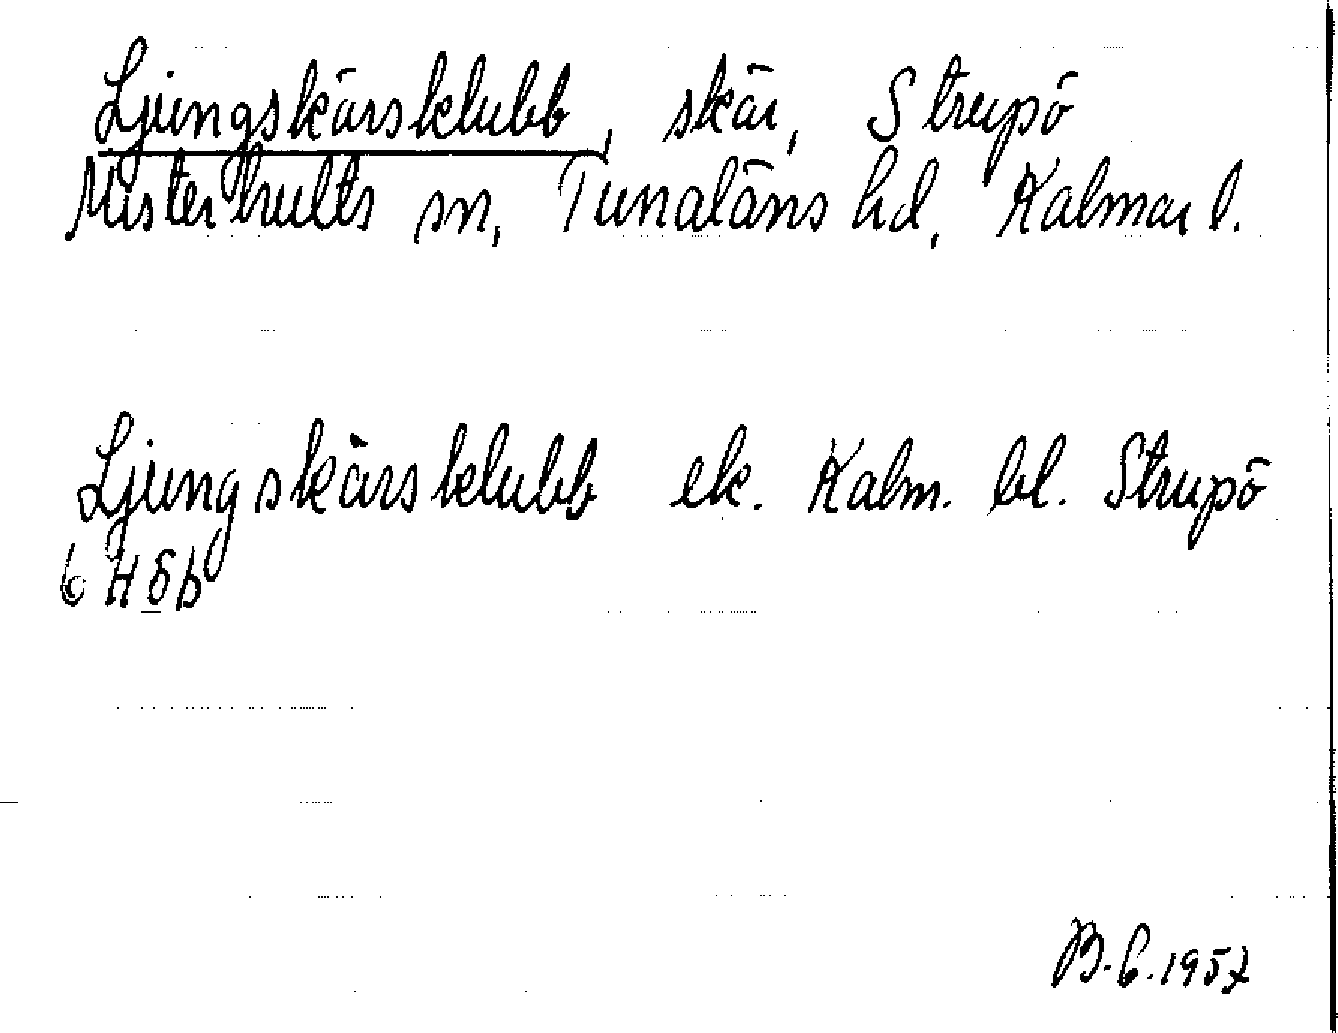 Ljungskärsklubb, skär, Strupö
Misterhults sn, Tunaläns hd, Kalmar l.
Ljungskärsklubb ek. Kalm. bl. Strupö
6 H 8 b
B.G.1957